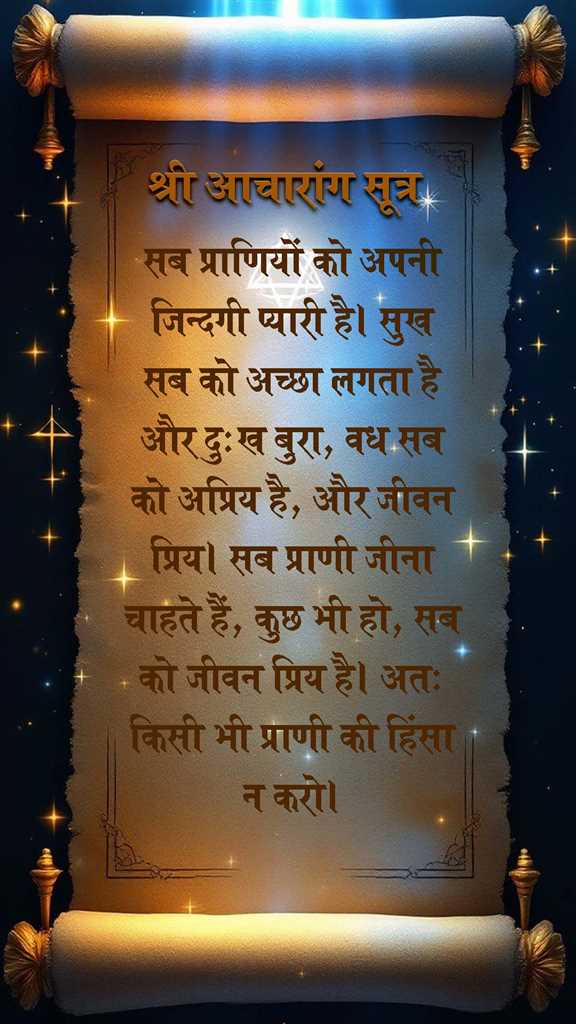 श्री आचारांग सूत्र
सब प्राणियों को अपनी
जिन्दगी प्यारी है। सुख
सब को अच्छा लगता है
और दुःख बुरा, वध सब
को अप्रिय है, और जीवन
प्रिय। सब प्राणी जीना
चाहते हैं, कुछ भी हो, सब
को जीवन प्रिय है। अतः
किसी भी प्राणी की हिंसा
न करो।